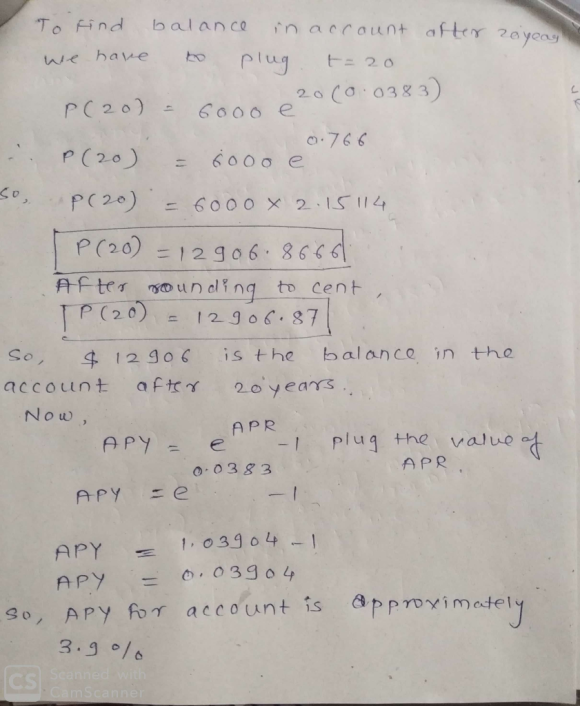 To find balance in account after 20 years
we have to plug t = 20
P(20) = 6000 e^20(0.0383)
∴ P(20) = 6000 e^0.766
So, P(20) = 6000 × 2.15114
P(20) = 12906.8666
After rounding to cent,
P(20) = 12906.87
So, $ 12906 is the balance in the
account after 20 years.
Now,
APY = e^APR - 1 plug the value of
APR.
APY = e^0.0383 - 1
APY = 1.03904 - 1
APY = 0.03904
So, APY for account is approximately
3.9 %
CS Scanned with
CamScanner